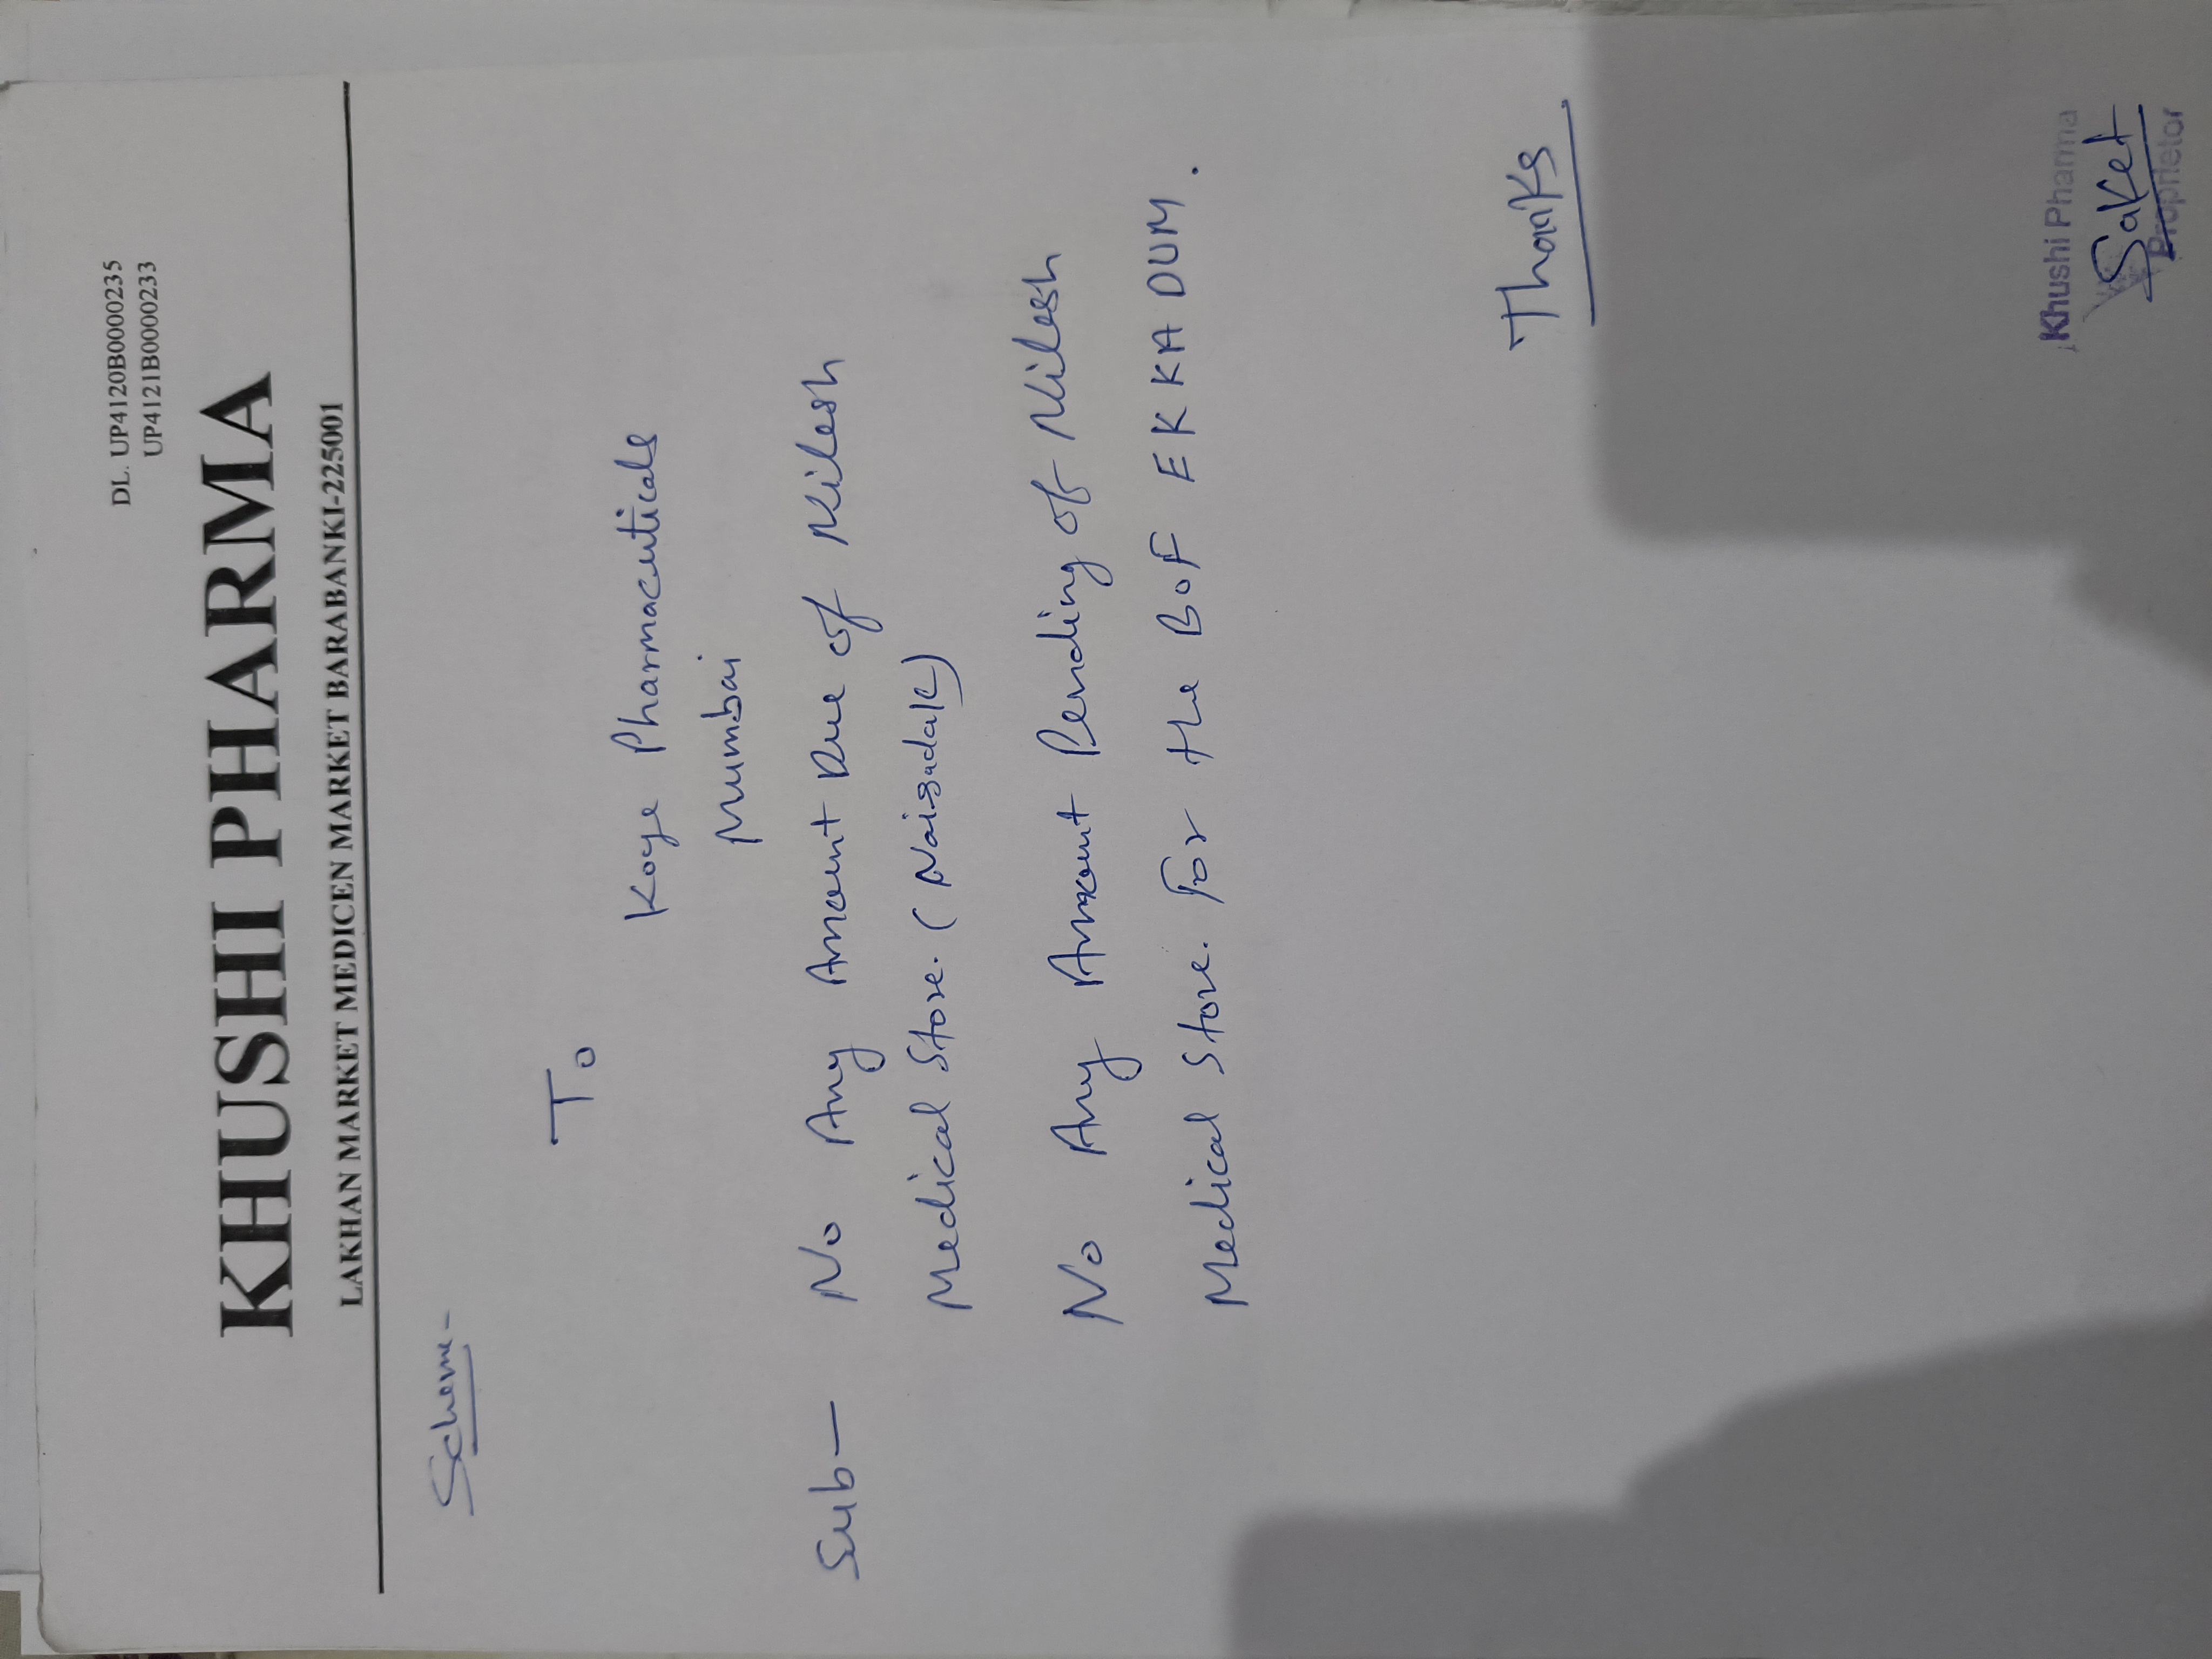 DL. UP4120B0000235
UP4121B0000233
KHUSHI PHARMA
LAKHAN MARKET MEDICEN MARKET BARABANKI-225001
Scheme-
To
Koye Pharmaceuticals
Mumbai
Sub- No Any Amount Due of Nilesh
Medical Store.
No Any Amount Pending of Nilesh
Medical Store. For the BOF EKKADUM.
Thanks
Khushi Pharma
Saket
Proprietor